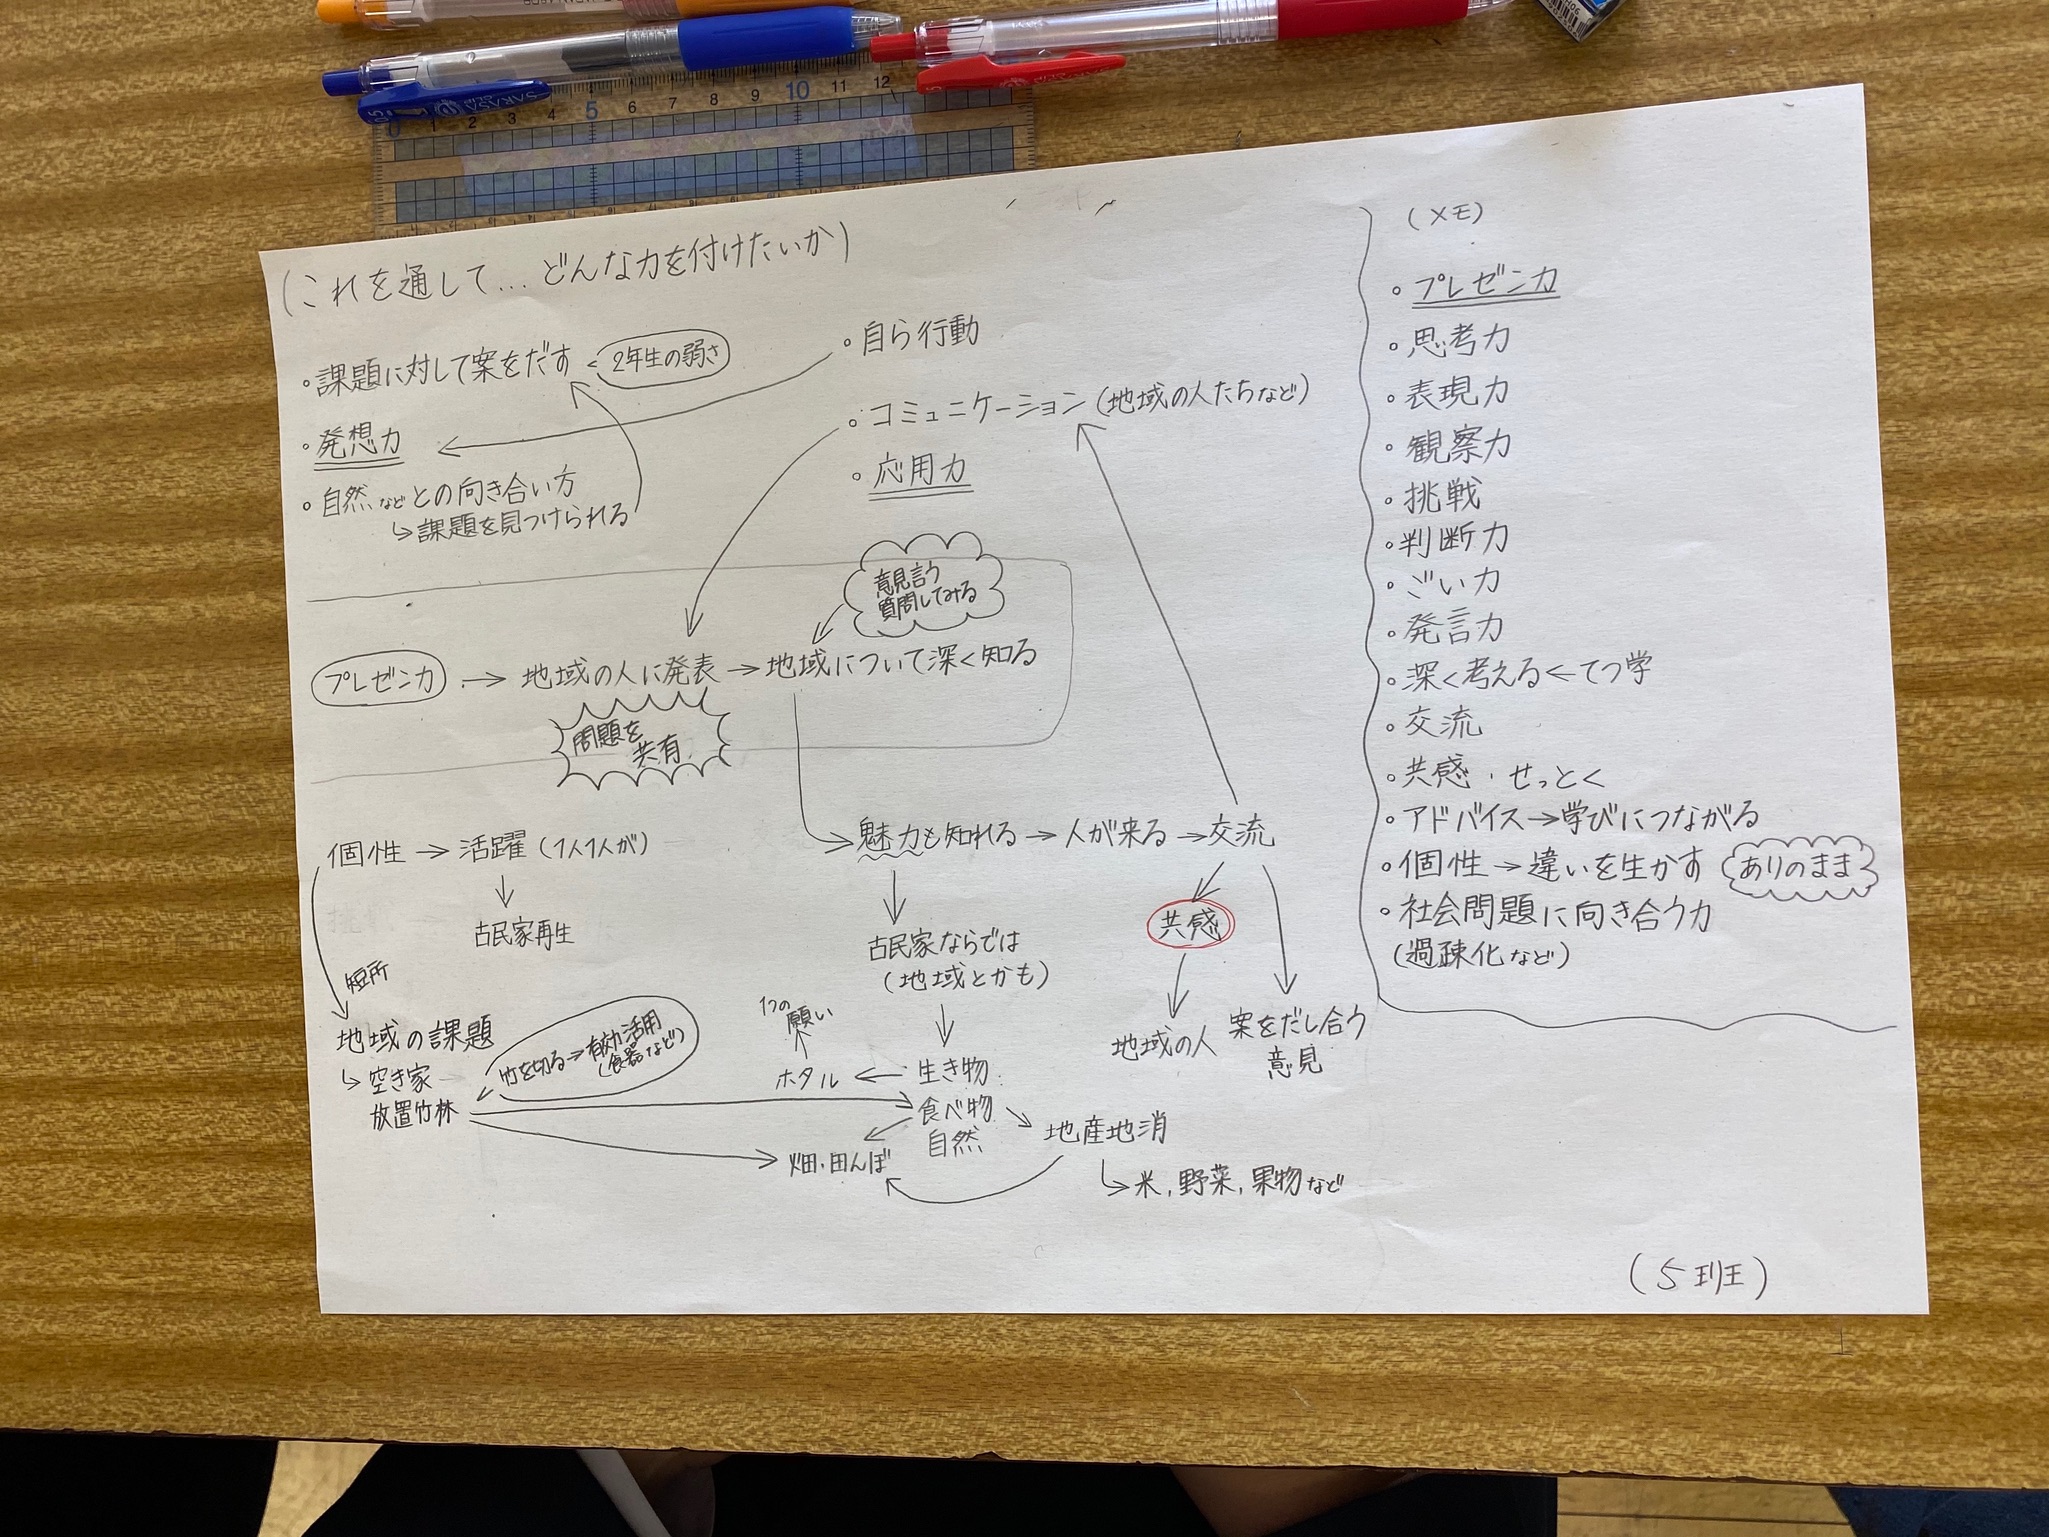 (これを通して...どんな力を付けたいか)
・課題に対して案をだす
2年生の弱さ
・発想力
・自然などとの向き合い方
↳課題を見つけられる
・自ら行動
・コミュニケーション(地域の人たちなど)
・応用力
意見言う
質問してみる
プレゼン力 → 地域の人に発表 → 地域について深く知る
問題を
共有
個性 → 活躍(1人1人が)
古民家再生
短所
地域の課題
↳空き家
放置竹林
竹を切る→有効活用
(食器など)
魅力も知れる → 人が来る → 交流
古民家ならでは
(地域とかも)
1つの
願い
ホタル ← 生き物
食べ物
自然
畑・田んぼ
地産地消
↳米,野菜,果物など
共感
地域の人
案をだし合う
意見
(メモ)
・プレゼン力
・思考力
・表現力
・観察力
・挑戦
・判断力
・ごい力
・発言力
・深く考える←てつ学
・交流
・共感・せっとく
・アドバイス→学びにつながる
・個性→違いを生かす
ありのまま
・社会問題に向き合う力
(過疎化など)
(5班)
0 1 2 3 4 5 6 7 8 9 10 11 12
SARASA